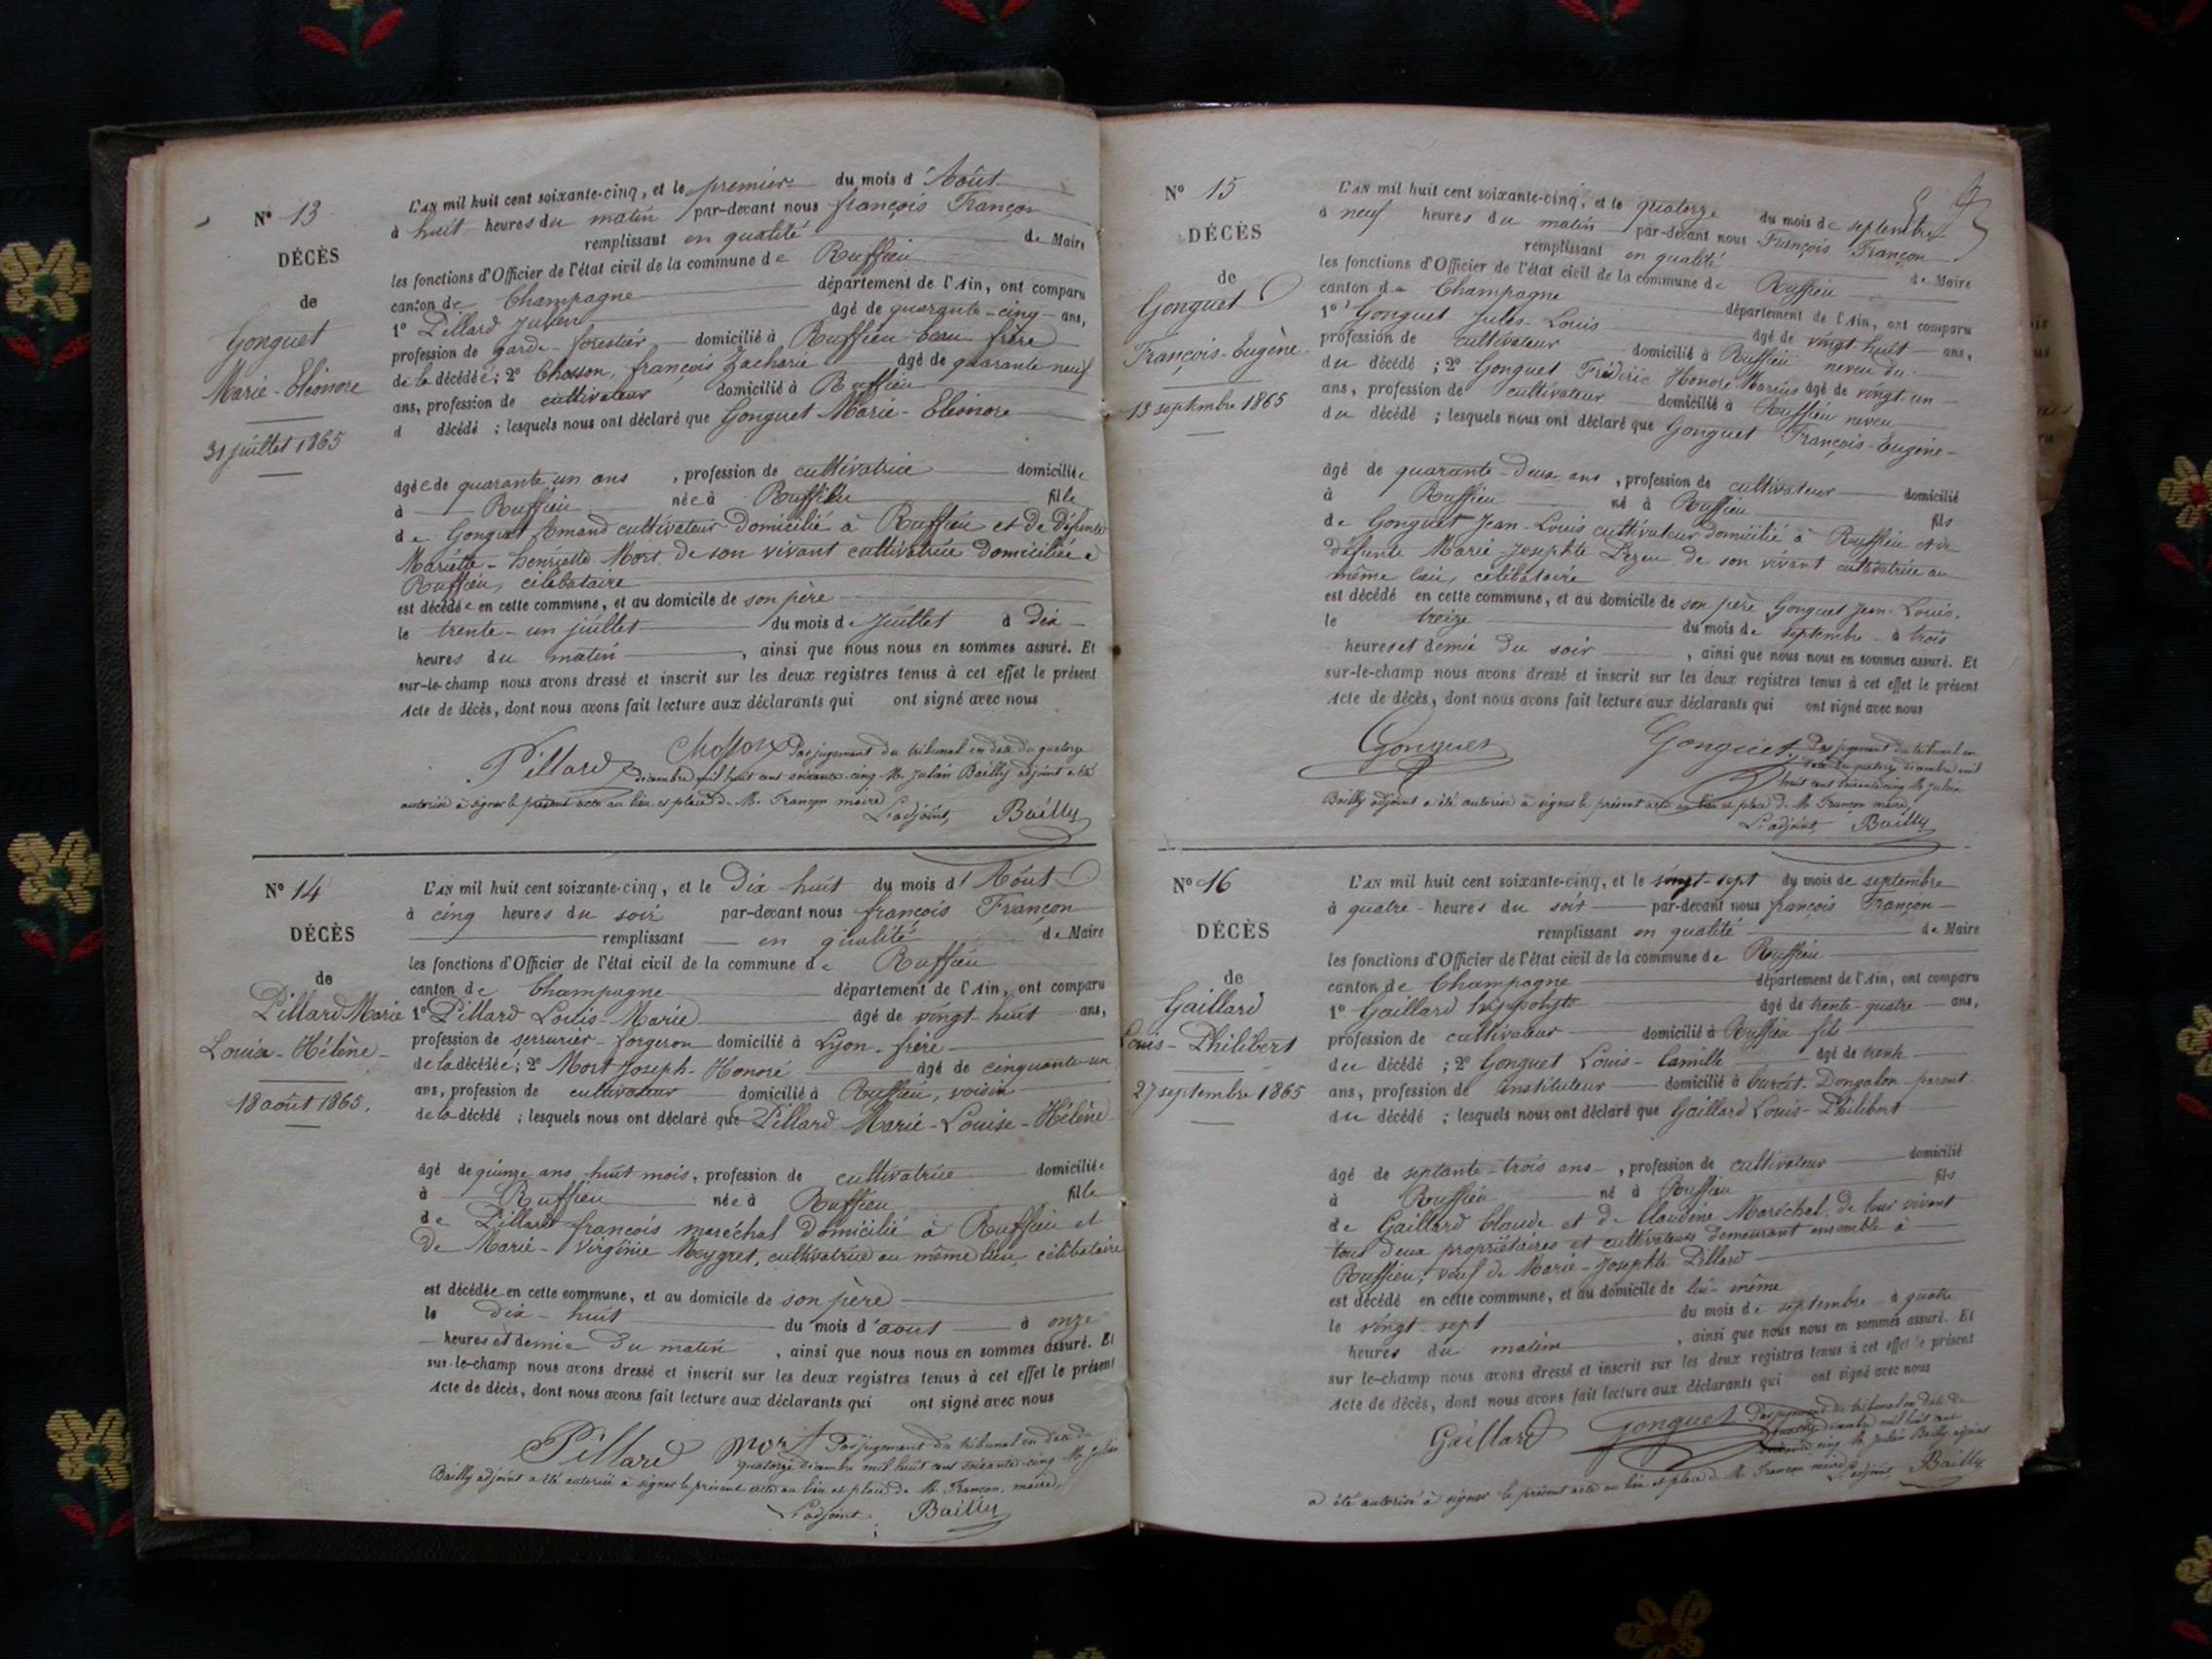 N° 13
DÉCÈS
de
Gonguet
Marie-Eléonore
31 juillet 1865
L'AN mil huit cent soixante-cinq, et le premier du mois d'Août
à huit heures du matin par-devant nous françois Françon
remplissant en qualité de Maire
les fonctions d'Officier de l'état civil de la commune de Ruffieu
canton de Champagne département de l'Ain, ont comparu
1° Pillard Julien âgé de quarante-cinq ans,
profession de garde forestier domicilié à Ruffieu beau frère
de la décédée; 2° Chosson, françois Zacharie âgé de quarante neuf
ans, profession de cultivateur domicilié à Ruffieu
d décédé ; lesquels nous ont déclaré que Gonguet Marie-Eléonore
âgée de quarante un ans , profession de cultivatrice domiciliée
à Ruffieu née à Ruffieu fille
de Gonguet Amand cultivateur domicilié à Ruffieu et de défunte
Mariette-henriette Mort, de son vivant cultivatrice domiciliée à
Ruffieu, célibataire
est décédée en cette commune, et au domicile de son père
le trente-un juillet du mois de Juillet à dix
heures du matin , ainsi que nous nous en sommes assuré. Et
sur-le-champ nous avons dressé et inscrit sur les deux registres tenus à cet effet le présent
Acte de décès, dont nous avons fait lecture aux déclarants qui ont signé avec nous
Pillard Chosson Par jugement du tribunal en date du quatorze
décembre mil huit cent soixante-cinq Mr Julien Bailly adjoint a été
autorisé à signer le présent acte au lieu et place de Mr Françon maire
L'adjoint, Bailly
N° 14
DÉCÈS
de
Pillard Marie
Louise-Hélène
18 août 1865.
L'AN mil huit cent soixante-cinq, et le Dix huit du mois d'Août
à cinq heures du soir par-devant nous françois Françon
remplissant en qualité de Maire
les fonctions d'Officier de l'état civil de la commune de Ruffieu
canton de Champagne département de l'Ain, ont comparu
1° Pillard Louis-Marie âgé de vingt-huit ans,
profession de serrurier-forgeron domicilié à Lyon, frère
de la décédée; 2° Mort Joseph-Honoré âgé de cinquante-un
ans, profession de cultivateur domicilié à Ruffieu, voisin
de la décédé ; lesquels nous ont déclaré que Pillard Marie-Louise-Hélène
âgé de quinze ans huit mois, profession de cultivatrice domiciliée
à Ruffieu née à Ruffieu fille
de Pillard françois maréchal domicilié à Ruffieu et
de Marie-Virginie Meygret, cultivatrice au même lieu, célibataire
est décédée en cette commune, et au domicile de son père
le dix-huit du mois d'aout à onze
heures et demie du matin , ainsi que nous nous en sommes assuré. Et
sur-le-champ nous avons dressé et inscrit sur les deux registres tenus à cet effet le présent
Acte de décès, dont nous avons fait lecture aux déclarants qui ont signé avec nous
Pillard Mort Par jugement du tribunal en date du
quatorze décembre mil huit cent soixante-cinq Mr Julien
Bailly adjoint a été autorisé à signer le présent acte au lieu et place de Mr Françon, maire,
L'adjoint Bailly
N° 15
DÉCÈS
de
Gonguet
François-Eugène
13 septembre 1865
L'AN mil huit cent soixante-cinq, et le quatorze du mois de septembre
à neuf heures du matin par-devant nous François Françon
remplissant en qualité de Maire
les fonctions d'Officier de l'état civil de la commune de Ruffieu
canton de Champagne département de l'Ain, ont comparu
1° Gonguet Jules-Louis âgé de vingt huit ans,
profession de cultivateur domicilié à Ruffieu neveu du
du décédé ; 2° Gonguet Fréderic Honoré Marcus âgé de vingt-un
ans, profession de cultivateur domicilié à Ruffieu neveu
du décédé ; lesquels nous ont déclaré que Gonguet François-Eugène
âgé de quarante-deux ans , profession de cultivateur domicilié
à Ruffieu né à Ruffieu fils
de Gonguet Jean-Louis cultivateur domicilié à Ruffieu et de
défunte Marie-Josephte de son vivant cultivatrice au
même lieu, célibataire
est décédé en cette commune, et au domicile de son père Gonguet Jean-Louis.
le treize du mois de septembre à trois
heures et demie du soir , ainsi que nous nous en sommes assuré. Et
sur-le-champ nous avons dressé et inscrit sur les deux registres tenus à cet effet le présent
Acte de décès, dont nous avons fait lecture aux déclarants qui ont signé avec nous
Gonguet Gonguet Par jugement du tribunal en
date du quatorze décembre mil
huit cent soixante cinq Mr Julien
Bailly adjoint a été autorisé à signer le présent acte au lieu et place de Mr Françon maire,
L'adjoint, Bailly
N° 16
DÉCÈS
de
Gaillard
Louis-Philibert
27 septembre 1865
L'AN mil huit cent soixante-cinq, et le vingt-sept du mois de septembre
à quatre heures du soir par-devant nous françois Françon
remplissant en qualité de Maire
les fonctions d'Officier de l'état civil de la commune de Ruffieu
canton de Champagne département de l'Ain, ont comparu
1° Gaillard hyppolyte âgé de trente-quatre ans,
profession de cultivateur domicilié à Ruffieu fils
du décédé ; 2° Gonguet Louis-Camille âgé de trente
ans, profession de instituteur domicilié à parent
du décédé ; lesquels nous ont déclaré que Gaillard Louis-Philibert
âgé de septante-trois ans , profession de cultivateur domicilié
à Ruffieu né à Ruffieu fils
de Gaillard Claude et de Claudine Maréchal, de leur vivant
tous deux propriétaires et cultivateurs demeurant ensemble à
Ruffieu, veuf de Marie-Josephte Pillard
est décédé en cette commune, et au domicile de lui-même
le vingt-sept du mois de septembre à quatre
heures du matin , ainsi que nous nous en sommes assuré. Et
sur le-champ nous avons dressé et inscrit sur les deux registres tenus à cet effet le présent
Acte de décès, dont nous avons fait lecture aux déclarants qui ont signé avec nous
Gaillard Gonguet Par jugement du tribunal en date du
quatorze décembre mil huit cent
soixante cinq Mr Julien Bailly adjoint
a été autorisé à signer le présent acte au lieu et place de Mr Françon maire L'adjoint, Bailly